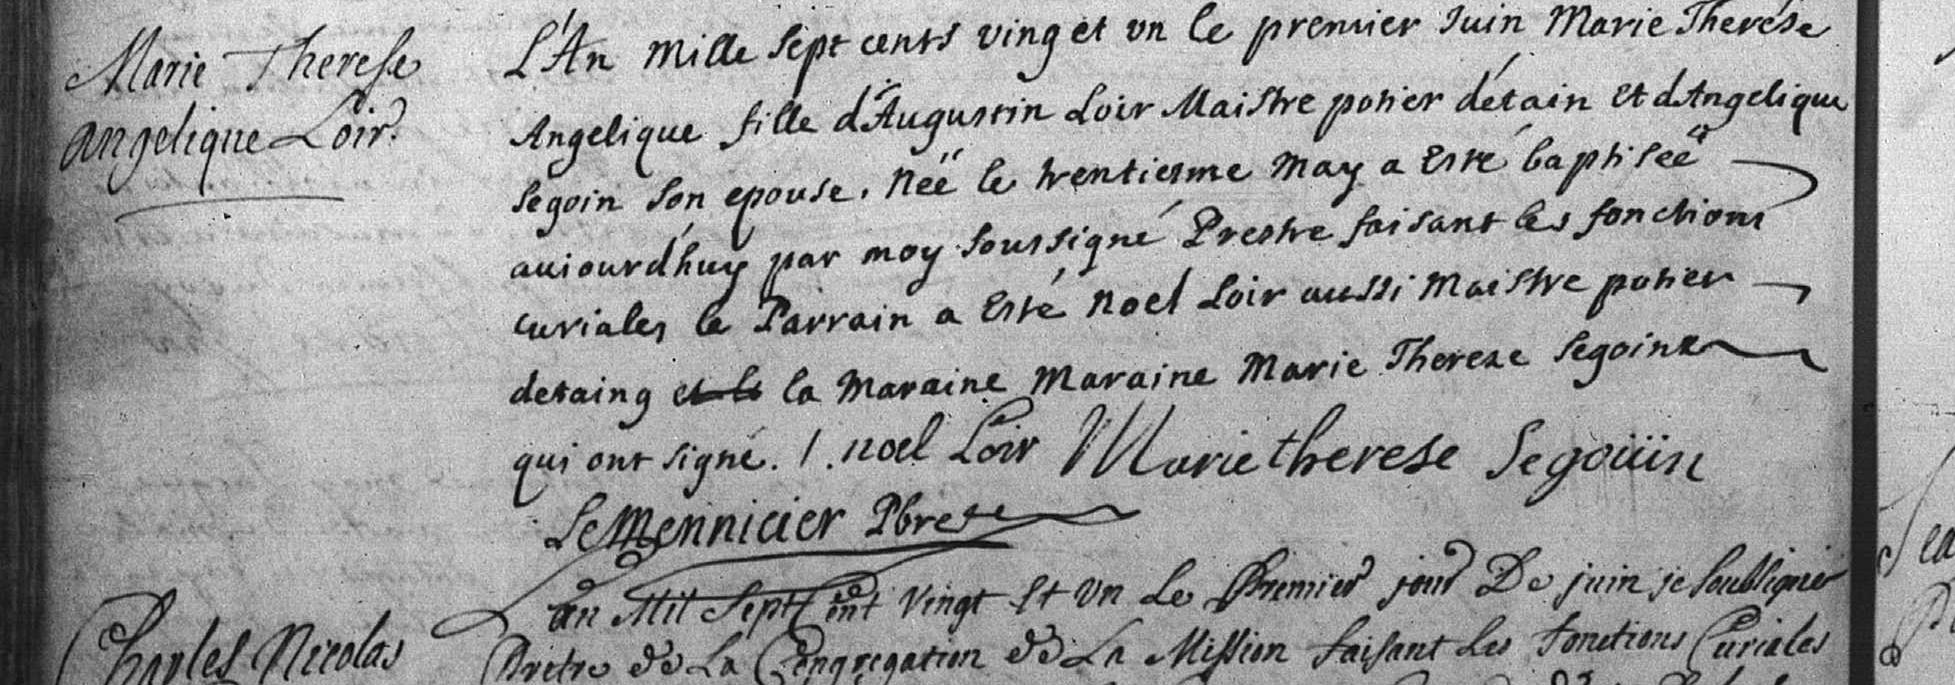 Marie Therese
Angelique Loir.
L'An mille sept cents ving et un le premier Juin Marie Therése
Angelique fille d'Augustin Loir Maistre potier détain Et dAngelique
Segoin son epouse. Néé le trentiesme May a Esté baptiséé
auiourdhuy par moy soussigné Prestre faisant les fonctions
curiales le Parrain a Esté Noel Loir aussi Maistre potier
detaing et la la Maraine Maraine Marie Therese Segoin
qui ont signé. /. noel Loir Marie therese Segoüin
Le Mennicier Pbre
an Mil Sept Cent Vingt Et Un Le Premier jour De juin je Soubsigné
Charles Nicolas
Prêtre de La Congregation de La Mission faisant Les fonctions Curiales